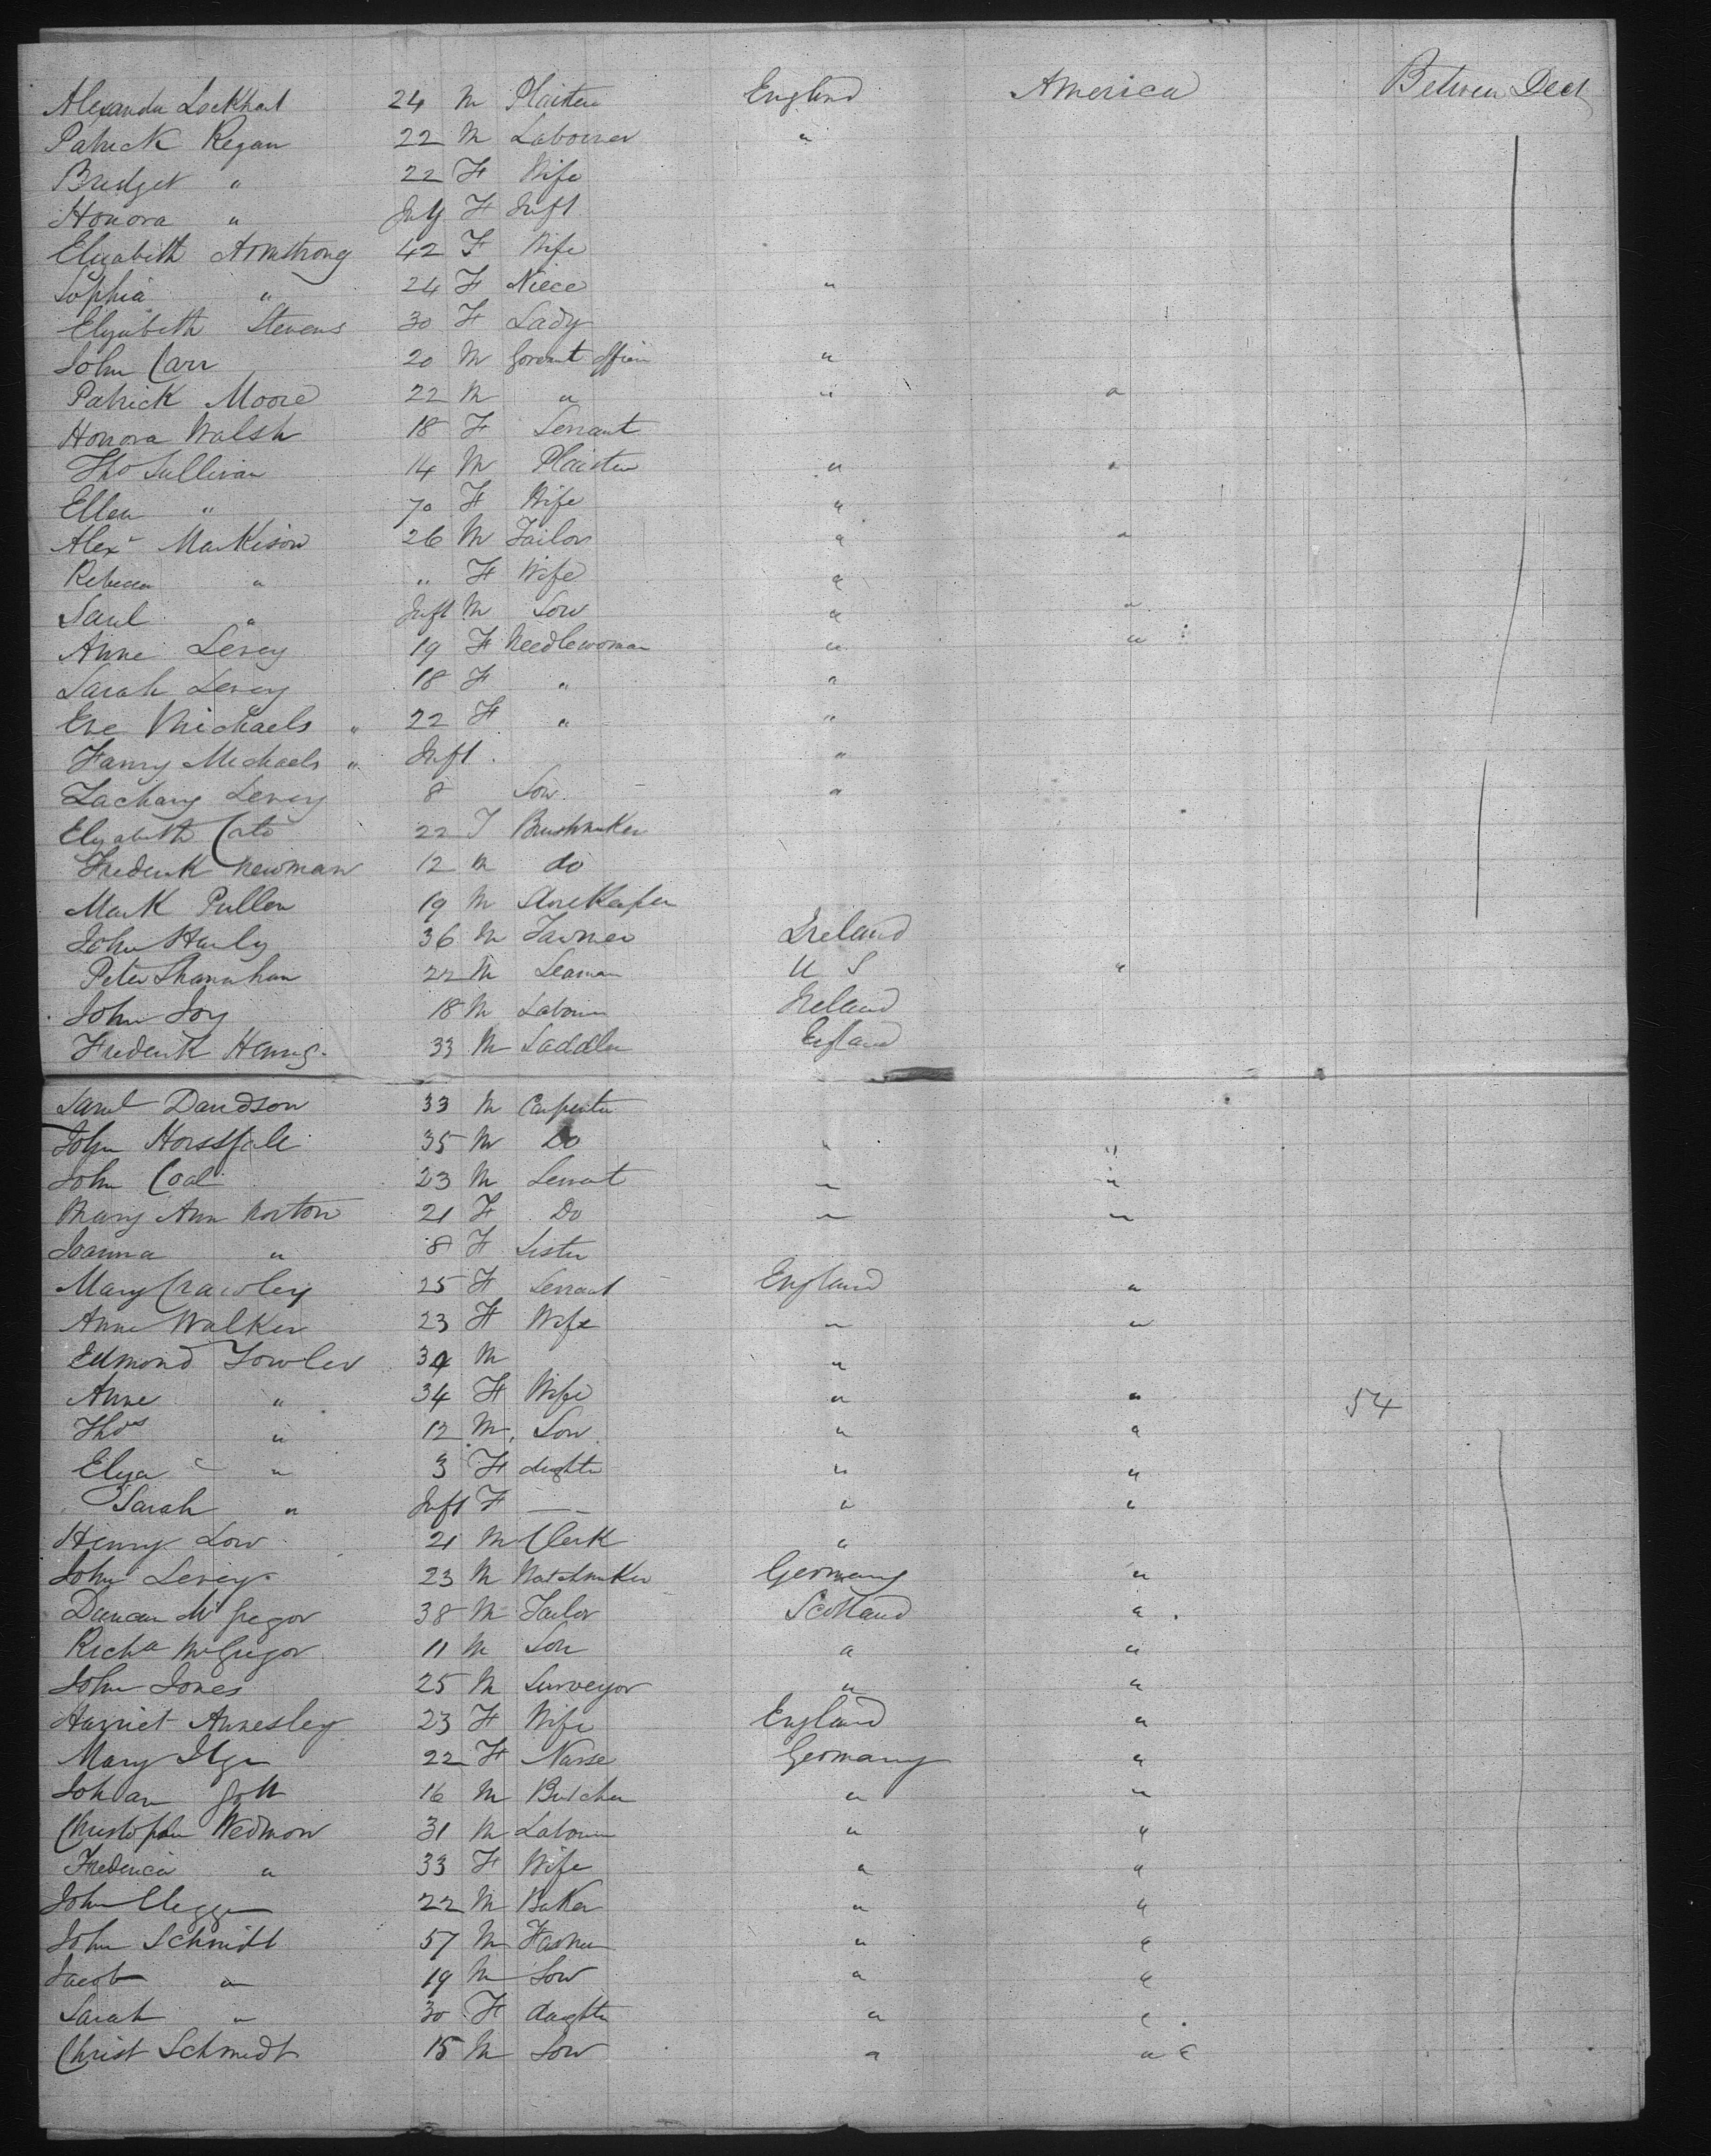 Alexander Lockhart 24 M Plaister England America Between Deck
Patrick Regan 22 M Labourer "
Bridget " 22 F Wife
Honora " Inft F Inft
Elizabeth Armstrong 42 F Wife
Sophia " 24 F Niece "
Elizabeth Stevens 30 F Lady
John Carr 20 M Govemt Officer "
Patrick Moore 22 M " " "
Honora Walsh 18 F Servant
Thos Sullivan 14 M Plaister " "
Ellen " 70 F Wife "
Alexr Markison 26 M Tailor " "
Rebecca " " F Wife "
Saul " Inft M Son " "
Anne Levey 19 F Needlewoman " "
Sarah Levey 18 F " "
Eve Michaels " 22 F " "
Fanny Michaels " Inft "
Zachary Levey 8 Son "
Elizabeth Cato 22 F Brushmaker
Frederick Newman 12 M do
Mark Pullen 19 M
John Hanly 36 M Farmer Ireland
Peter Shanahan 22 M Seaman U S "
John Joy 18 M Labourer Ireland
Frederick Henry 33 M Saddler England
Saml Davidson 33 M Carpenter
John 35 M Do " "
John Coal 23 M Servant " "
Mary Ann Norton 21 F Do " "
Joanna " 8 F Sister
Mary Crawley 25 F Servant England "
Anne Walker 23 F Wife " "
Edmond Fowler 34 M "
Anne " 34 F Wife " " 54
Thos " 12 M Son " "
Eliza " 3 F daughter " "
Sarah " Inft F — " "
Henry Low 21 M Clerk "
John Levey 23 M Watchmaker Germany "
Duncan McGregor 38 M Tailor Scotland "
Richd McGregor 11 M Son " "
John Jones 25 M Surveyor " "
Harriet Annesley 23 F Wife England "
Mary 22 F Nurse Germany "
Johan Gott 16 M Butcher " "
Christopher Wedmon 31 M Labourer " "
Frederica " 33 F Wife " "
John 22 M Baker " "
John Schmidt 57 M Farmer " "
Jacob " 19 M Son " "
Sarah " 30 F daughter " "
Christ Schmidt 15 M Son " "